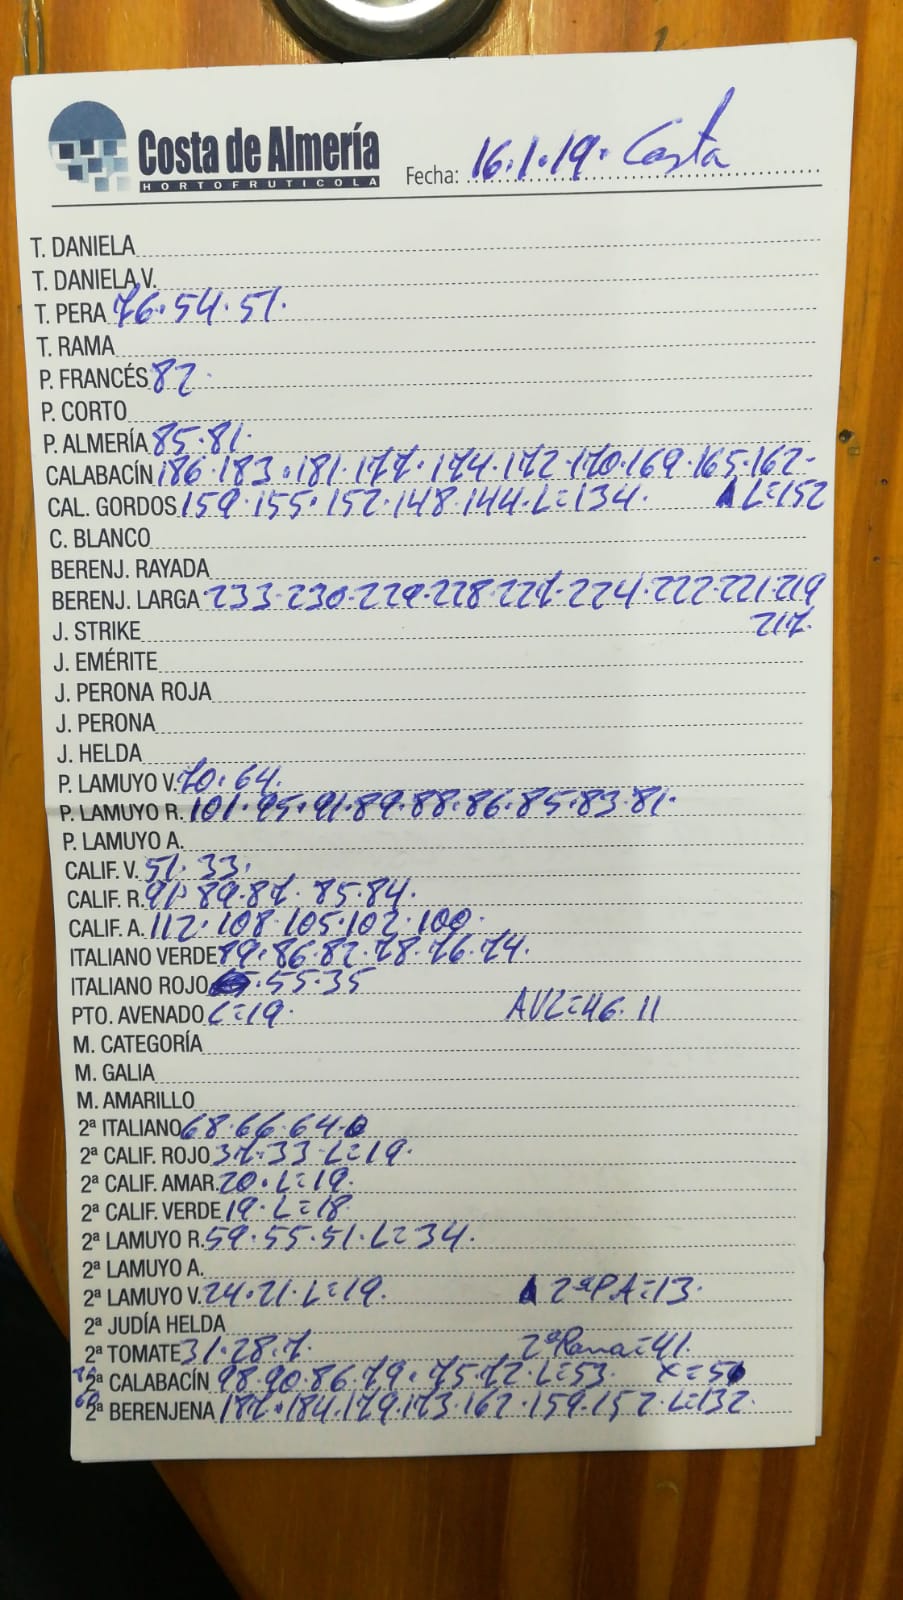 Costa de Almería
HORTOFRUTICOLA
Fecha: 16.1.19. Costa
T. DANIELA
T. DANIELA V.
T. PERA 76.54.51.
T. RAMA
P. FRANCÉS 82.
P. CORTO
P. ALMERÍA 85.81.
CALABACÍN 186.183.181.177.174.172.170.169.165.162-
CAL. GORDOS 159.155.152.148.144.L=134. L=152
C. BLANCO
BERENJ. RAYADA
BERENJ. LARGA 233.230.229.228.227.224.222.221.219
J. STRIKE 217.
J. EMÉRITE
J. PERONA ROJA
J. PERONA
J. HELDA
P. LAMUYO V. 70.64.
P. LAMUYO R. 101.95.91.89.88.86.85.83.81.
P. LAMUYO A.
CALIF. V. 51.33.
CALIF. R. 91.89.87.85.84.
CALIF. A. 112.108.105.102.100.
ITALIANO VERDE 89.86.82.78.76.74.
ITALIANO ROJO .55.35
PTO. AVENADO L=19. AVL=46.11
M. CATEGORÍA
M. GALIA
M. AMARILLO
2ª ITALIANO 68.66.64.
2ª CALIF. ROJO 37.33.L=19.
2ª CALIF. AMAR. 20.L=19.
2ª CALIF. VERDE 19.L=18
2ª LAMUYO R. 59.55.51.L=34.
2ª LAMUYO A.
2ª LAMUYO V. 24.21.L=19. 2ªPA=13.
2ª JUDÍA HELDA
2ª TOMATE 31.28.7. 2ªRama=41.
2ª CALABACÍN 98.90.86.79.75.72.L=53.
2ª BERENJENA 187.184.179.173.162.159.152.L=132.